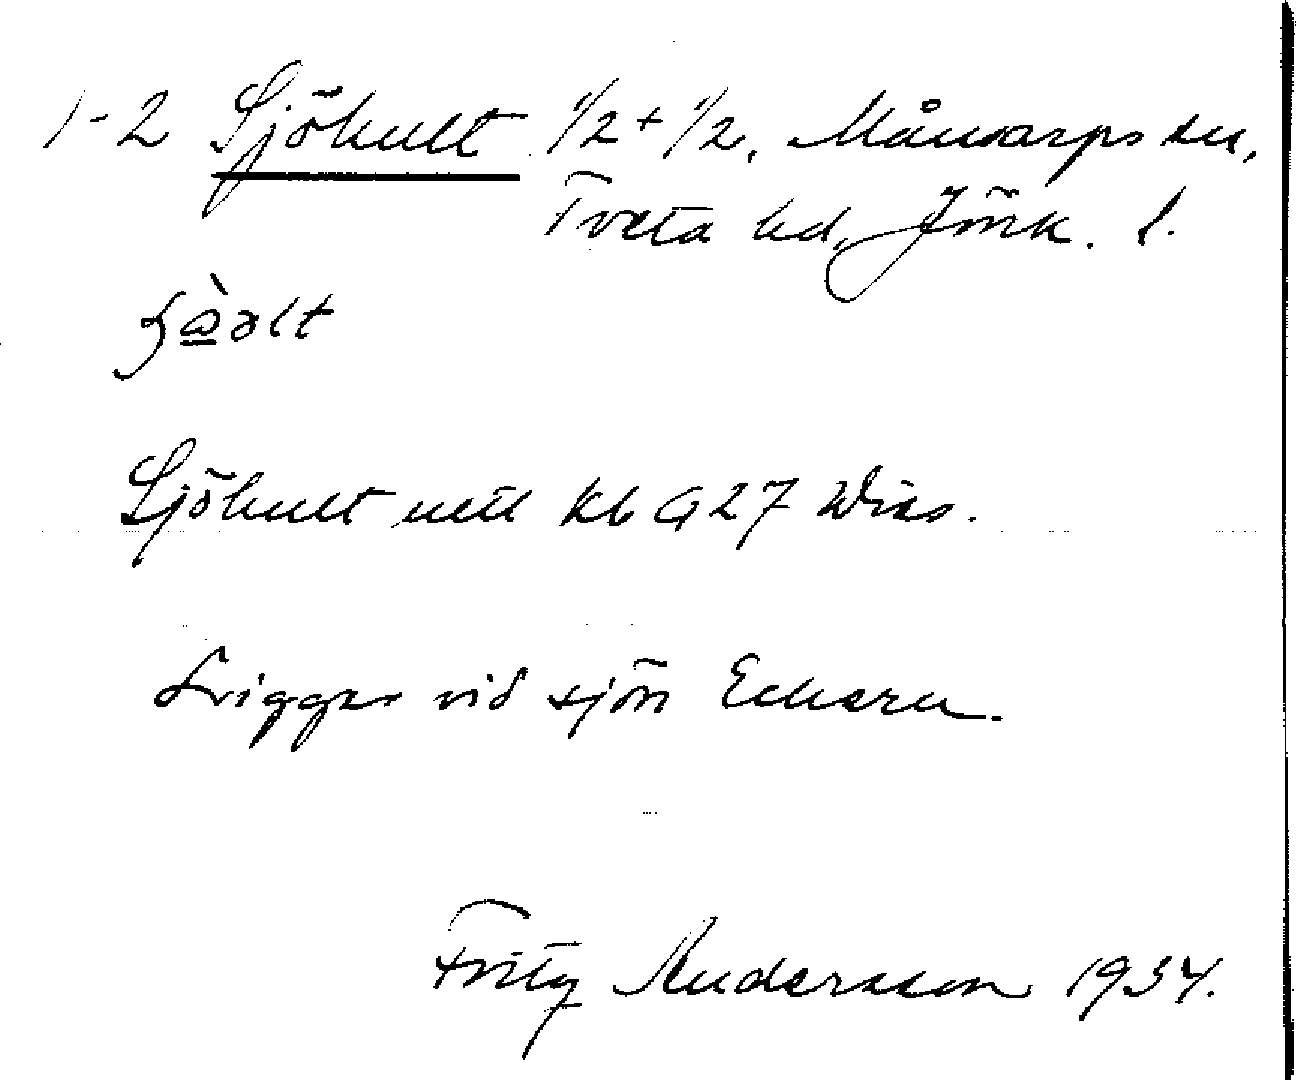 1-2 Sjöhult 1/2 + 1/2, Månsarps sn,
Tveta hd, Jönk. l.
Sjöhult utt kb G 27 Wiss.
Ligger vid sjön Eckern.
Fritz Andersson 1934.